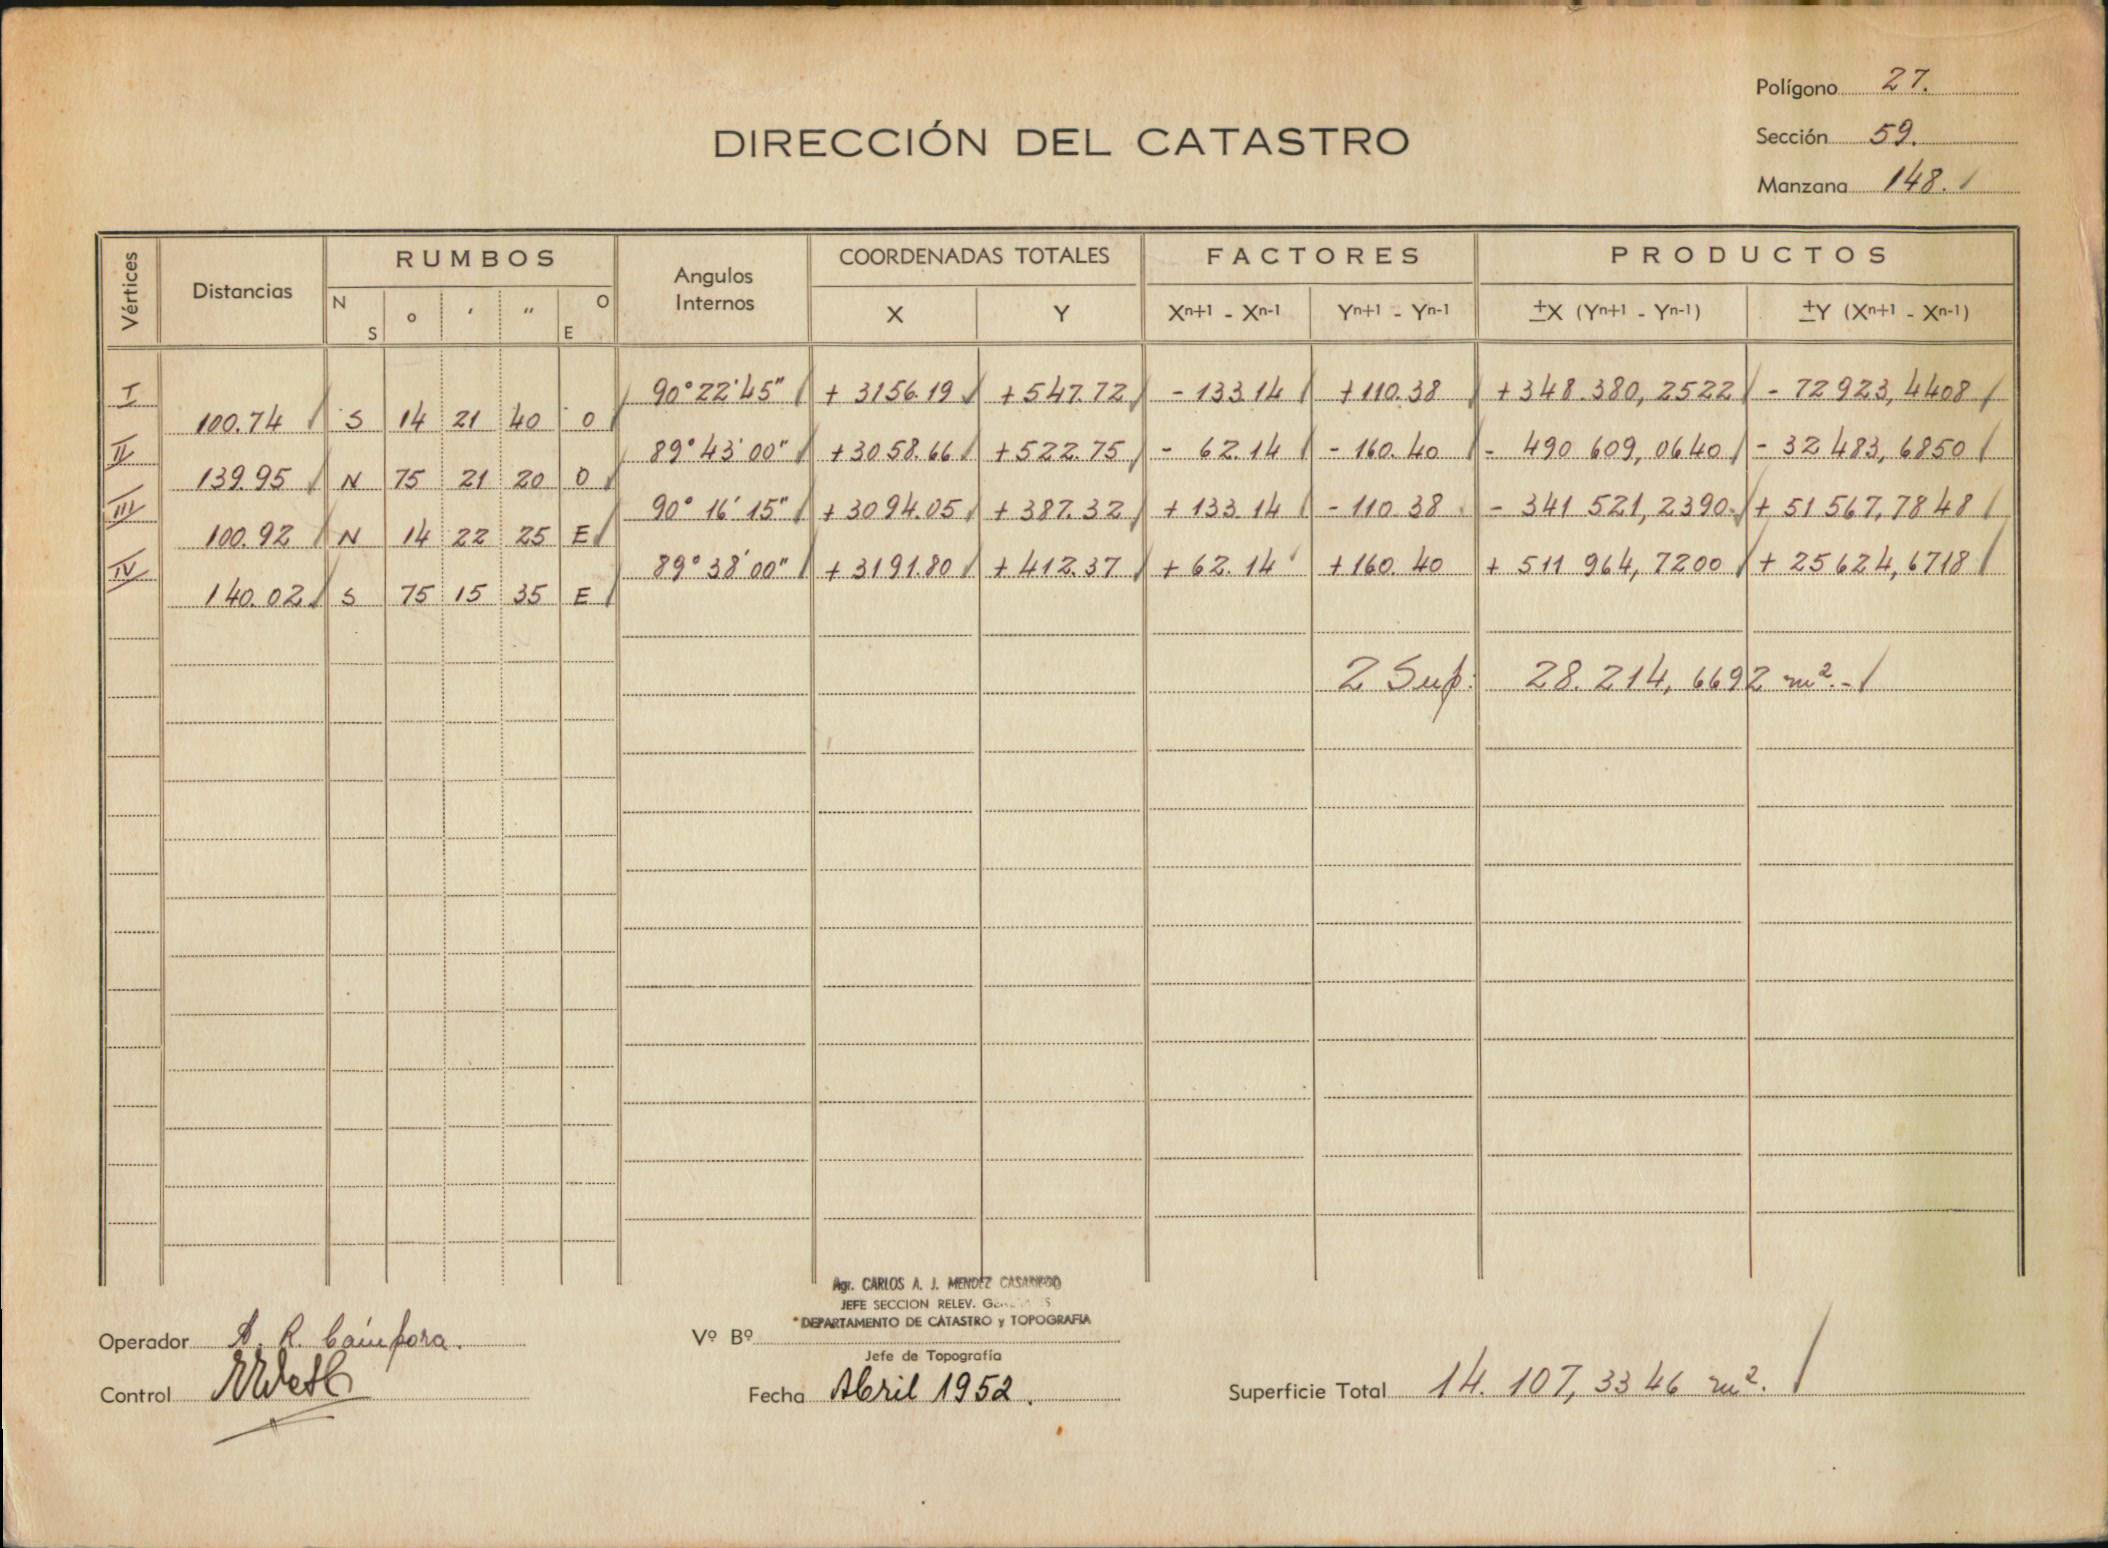 Polígono 27.
DIRECCIÓN DEL CATASTRO
Sección 59.
Manzana 148.
Vértices Distancias RUMBOS Angulos Internos COORDENADAS TOTALES FACTORES PRODUCTOS
N S o ' " O E X Y Xn+1 - Xn-1 Yn+1 - Yn-1 ±X (Yn+1 - Yn-1) ±Y (Xn+1 - Xn-1)
I 90°22'45" + 3156.19 + 547.72 - 133.14 + 110.38 + 348.380,2522 - 72 923,4408
100.74 S 14 21 40 O
II 89°43'00" + 3058.66 + 522.75 - 62.14 - 160.40 - 490 609,0640 - 32 483,6850
139.95 N 75 21 20 O
III 90°16'15" + 3094.05 + 387.32 + 133.14 - 110.38 - 341 521,2390 + 51 567,7848
100.92 N 14 22 25 E
IV 89°38'00" + 3191.80 + 412.37 + 62.14 + 160.40 + 511 964,7200 + 25 624,6718
140.02 S 75 15 35 E
2 Sup. 28.214,6692 m².-
Agr. CARLOS A. J. MENDEZ
JEFE SECCION RELEV.
DEPARTAMENTO DE CATASTRO y TOPOGRAFIA
Operador A. R. Cámpora.
Vº Bº
Jefe de Topografía
Control
Fecha Abril 1952.
Superficie Total 14.107,3346 m².